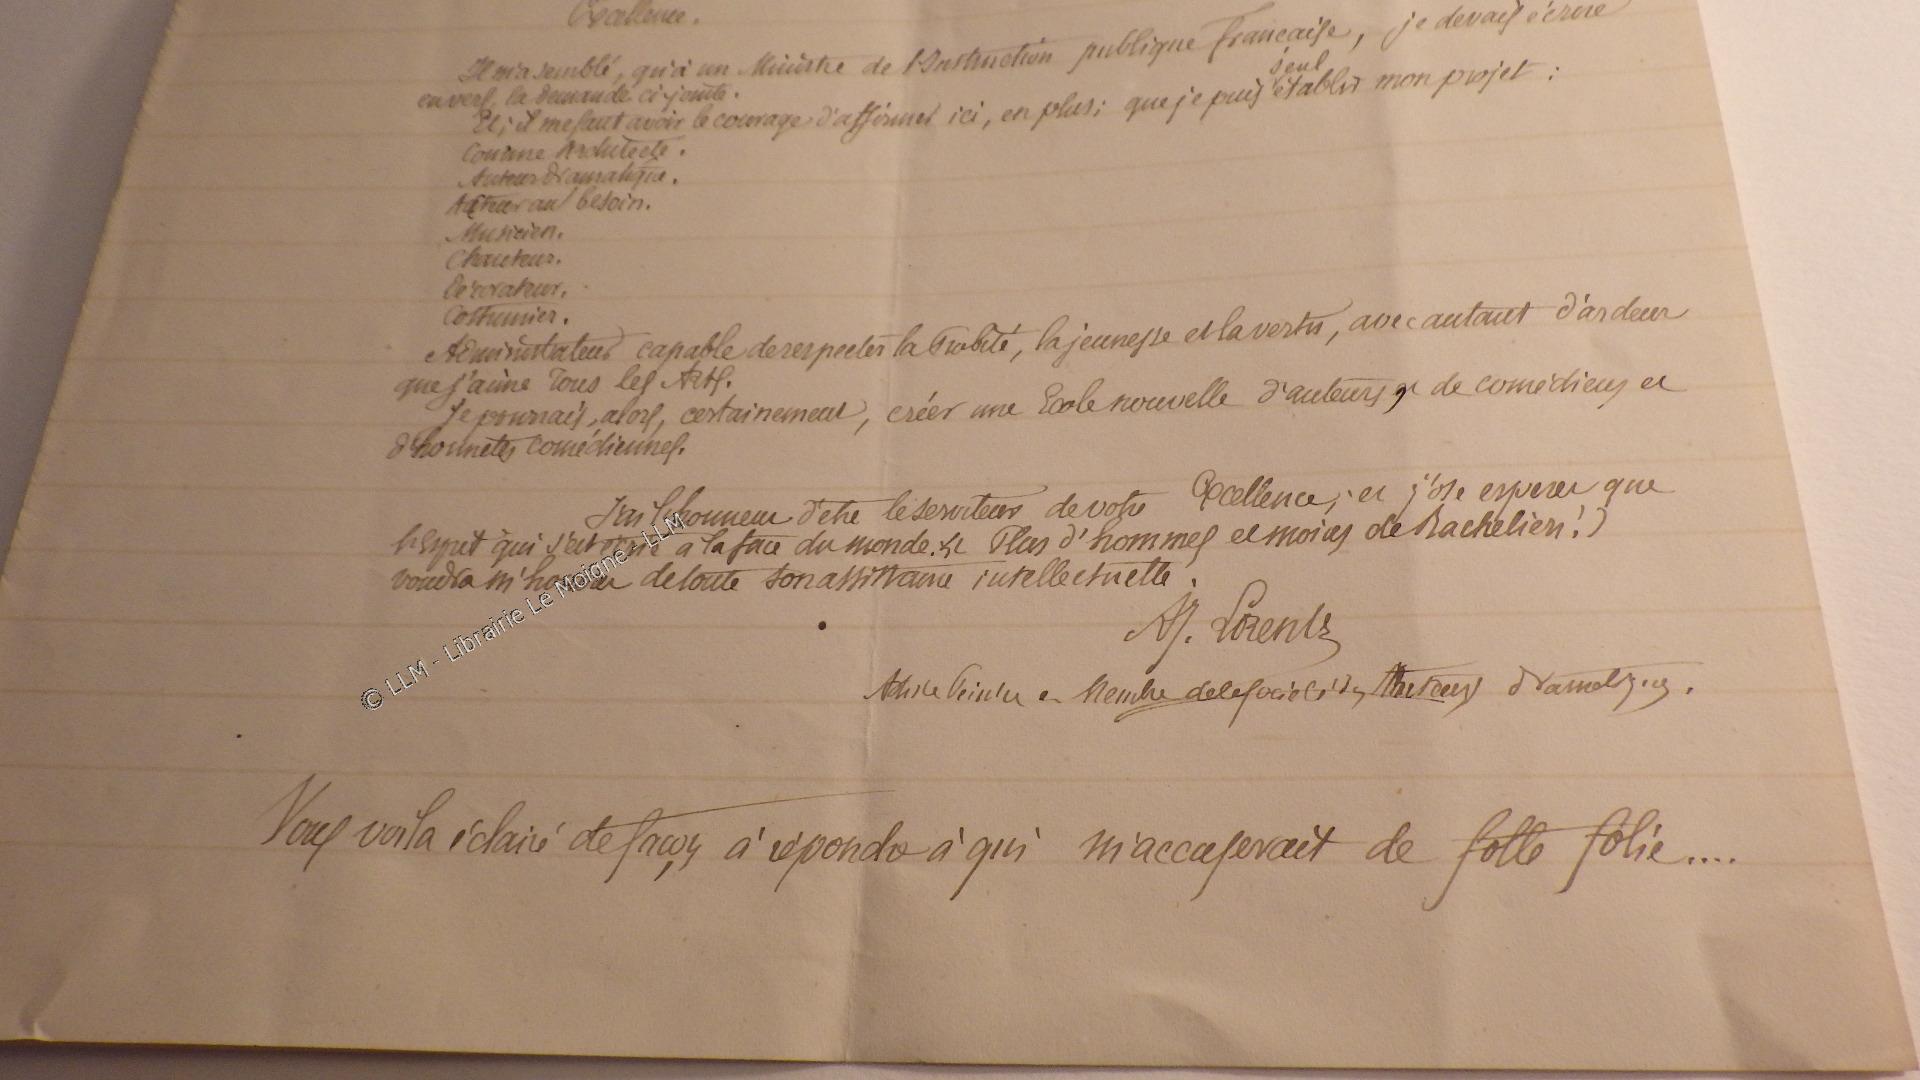 Excellence.
Il m'a semblé, qu'à un Ministre de l'Instruction publique Française, je devais écrire
en vers, la demande ci-jointe.
Et; il me faut avoir le courage d'affirmer ici, en plus; que je puis seul établir mon projet :
Comme Architecte.
Auteur dramatique.
Acteur au besoin.
Musicien.
Chanteur.
Décorateur.
Costumier.
Administrateur capable de respecter la Probité, la jeunesse et la vertu, avec autant d'ardeur
que j'aime Tous les Arts.
Je pourrais, alors, certainement, créer une Ecole nouvelle d'auteurs, de comédiens et
d'honnêtes comédiennes.
J'ai l'honneur d'être le serviteur de votre Excellence; et j'ose esperer que
l'Esprit qui s'est écrié à la face du monde. (Plus d'hommes et moins de Bacheliers!)
voudra m'honorer de toute son assistance intellectuelle.
Aj. Lorentz
Artiste Peintre et Membre de la Société des Auteurs dramatiques.
Vous voilà éclairé de façon à répondre à qui m'accuserait de folle folie....
© LLM - Librairie Le Moigne - LLM